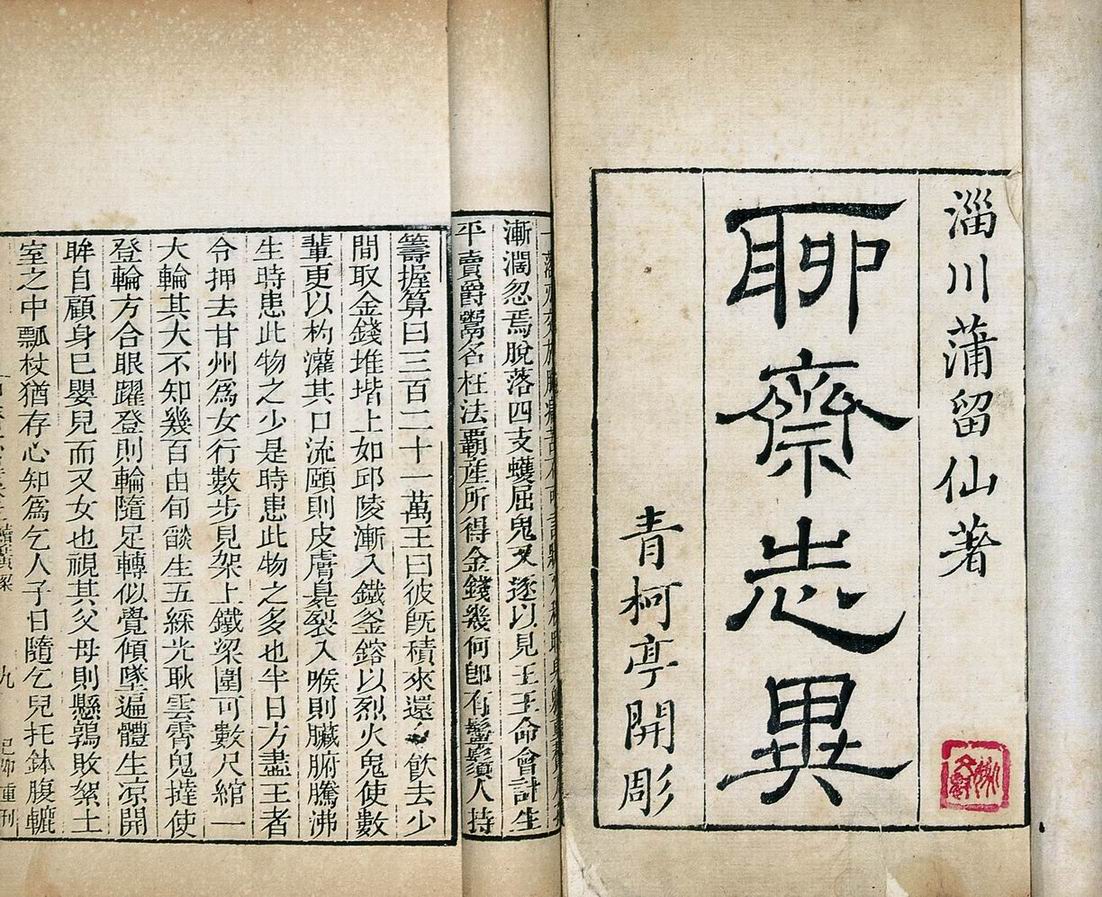 淄川蒲留仙著
聊齋志異
青柯亭開彫
漸潤忽焉脫落四支蠖屈鬼叉逐以見王王命會計生
平賣爵鬻名枉法覇產所得金錢幾何卽有鬡鬚人持
籌握算曰三百二十一萬王曰彼旣積來還令飮去少
間取金錢堆堦上如邱陵漸入鐵釜鎔以烈火鬼使數
輩更以杓灌其口流頤則皮膚臭裂入喉則臟腑騰沸
生時患此物之少是時患此物之多也半日方盡王者
令押去甘州爲女行數步見架上鐵梁圍可數尺綰一
大輪其大不知幾百由旬燄生五綵光耿雲霄鬼撻使
登輪方合眼躍登則輪隨足轉似覺傾墜遍體生凉開
眸自顧身已嬰兒而又女也視其父母則懸鶉敗絮土
室之中瓢杖猶存心知爲乞人子日隨乞兒托鉢腹轆
續黃粱 九 己卯重刊